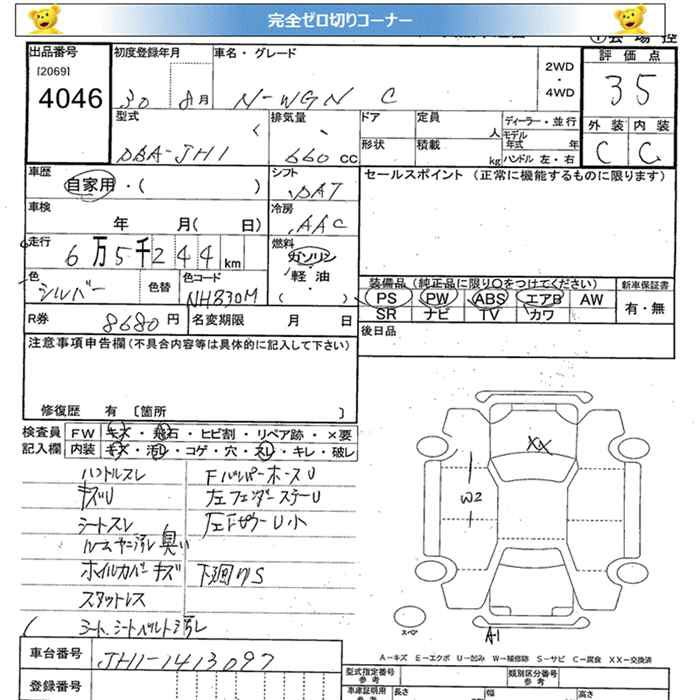 完全ゼロ切りコーナー
①会場控
出品番号 初度登録年月 車名・グレード 評価点
[2069]
4046 30 8月 N-WGN C 2WD・4WD 35
型式 排気量 ドア 定員 人 ディーラー・並行 外装 内装
DBA-JH1 660cc 形状 積載 kg モデル年式 年 ハンドル 左・右 C C
車歴 シフト セールスポイント(正常に機能するものに限ります)
自家用・( ) DAT
車検 冷房
年 月( 日) AAC
走行 燃料
6万5千244km ガソリン
軽油
色 色替 色コード ( )
シルバー NH830M
装備品(純正品に限り○をつけてください) 新車保証書
PS PW ABS エアB AW 有・無
SR ナビ TV カワ
R券 8680円 名変期限 月 日 後日品
注意事項申告欄(不具合内容等は具体的に記入して下さい)
修復歴 有 〔箇所 〕
検査員 FW キズ・飛石・ヒビ割・リペア跡・×要
記入欄 内装 キズ・汚レ・コゲ・穴・スレ・キレ・破レ
ハンドルスレ FバンパーホースU
キズU 左フェンダーステーU
シートスレ
ルームヤニ汚レ 臭い
ホイルカバーキズ 下廻りS
スタットレス
シート、シートベルト汚レ
XX
W2
スペア
A-1
A-キズ E-エクボ U-凹み W-補修跡 S-サビ C-腐食 XX-交換済
車台番号 JH1-1413097
型式指定番号 参考 類別区分番号 参考
登録番号 車庫証明用 参考 長さ 幅 高さ